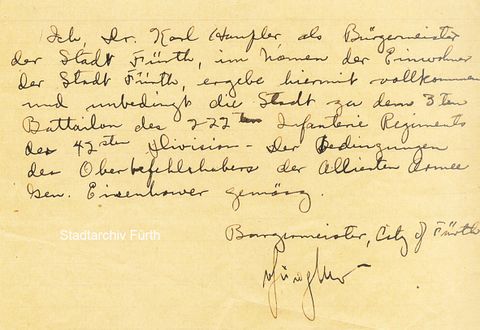 Ich, Dr. Karl Häupler als Bürgermeister
der Stadt Fürth, im Namen der Einwohner
der Stadt Fürth, ergebe hiermit vollkommen
und unbedingt die Stadt zu dem 3ten
Battailon des 222ten Infanterie Regiments
der 42sten Division - der Bedingungen
des Oberbefehlshabers der Allierten Armee
Gen. Eisenhower gemäss.
Stadtarchiv Fürth
Burgermeister, City of Fürth